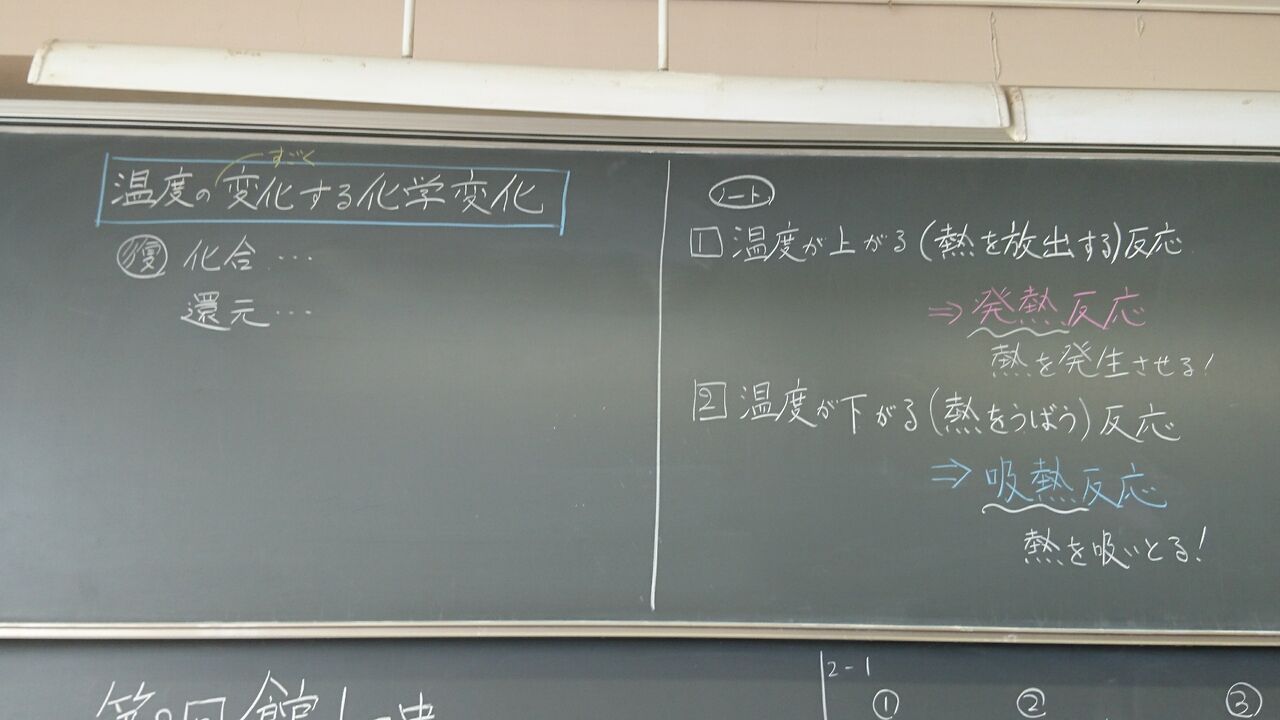 すごく
温度の変化する化学変化
復 化合…
還元…
ノート
1 温度が上がる(熱を放出する)反応
⇒発熱反応
熱を発生させる!
2 温度が下がる(熱をうばう)反応
⇒吸熱反応
熱を吸いとる!
2-1
① ② ③